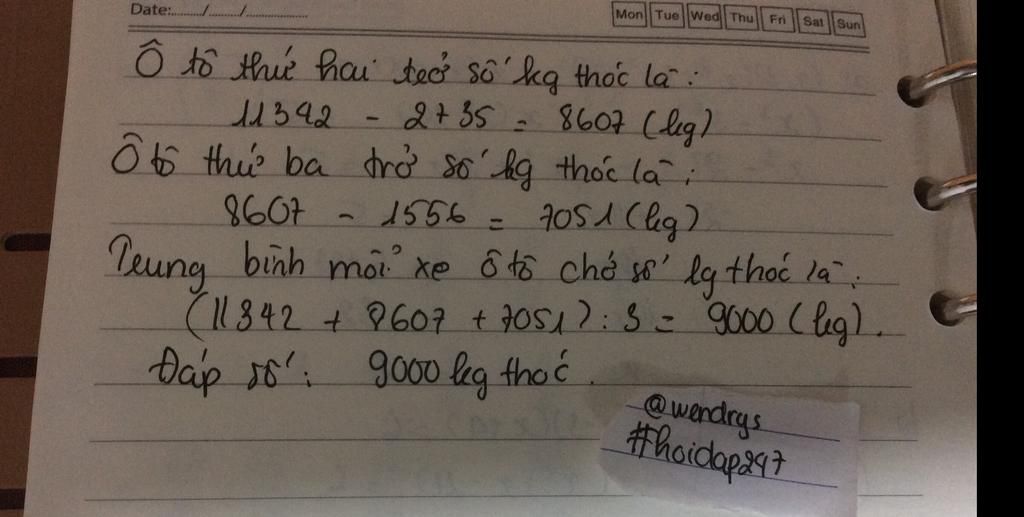 Date:....../....../..................
Mon Tue Wed Thu Fri Sat Sun
Ô tô thứ hai trở số kg thóc là:
11342 - 2735 = 8607 (kg)
Ô tô thứ ba trở số kg thóc là:
8607 - 1556 = 7051 (kg)
Trung bình mỗi xe ô tô chở số kg thóc là:
(11342 + 8607 + 7051) : 3 = 9000 (kg).
Đáp số: 9000 kg thóc.
@wendrgs
#hoidap247